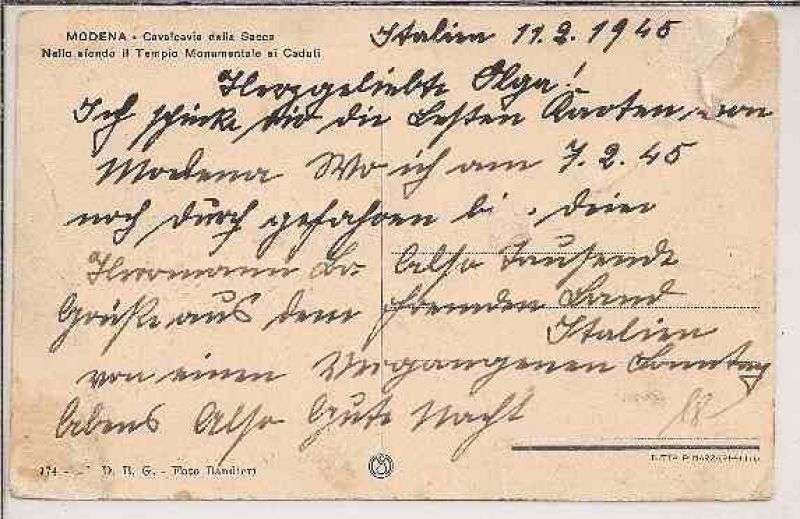 MODENA - Cavalcavia della Sacca
Nello sfondo il Tempio Monumentale ai Caduti
Italien 11.2.1945
Herzgeliebte Olga!
Ich schicke dir die besten Karten von
Modena Wo ich am 7.2.45
noch durch gefahren bi. deier
Herrmann Also Tausende
Grüße aus dem fremden Land
Italien
von einen Vergangenen Sonntag
Abens Also Gute Nacht
D. B. G. - Foto Bandieri